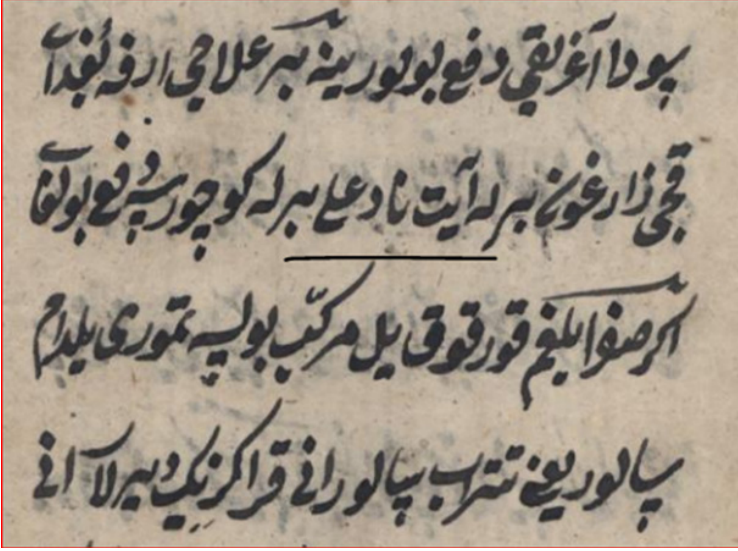 پودا آغریقی دفع بولور ینه بیر علاجی ارفه بُغدا
قچی زارغون بیرله آیت ناد علی بیرله کوچورسه دفع بولغا
اکر صفرا بلغم قورقوق یل مرکّب بولسه تموری یلدام
سالور یعنی تتراب سالور انی قراکزیک دیرلا انی